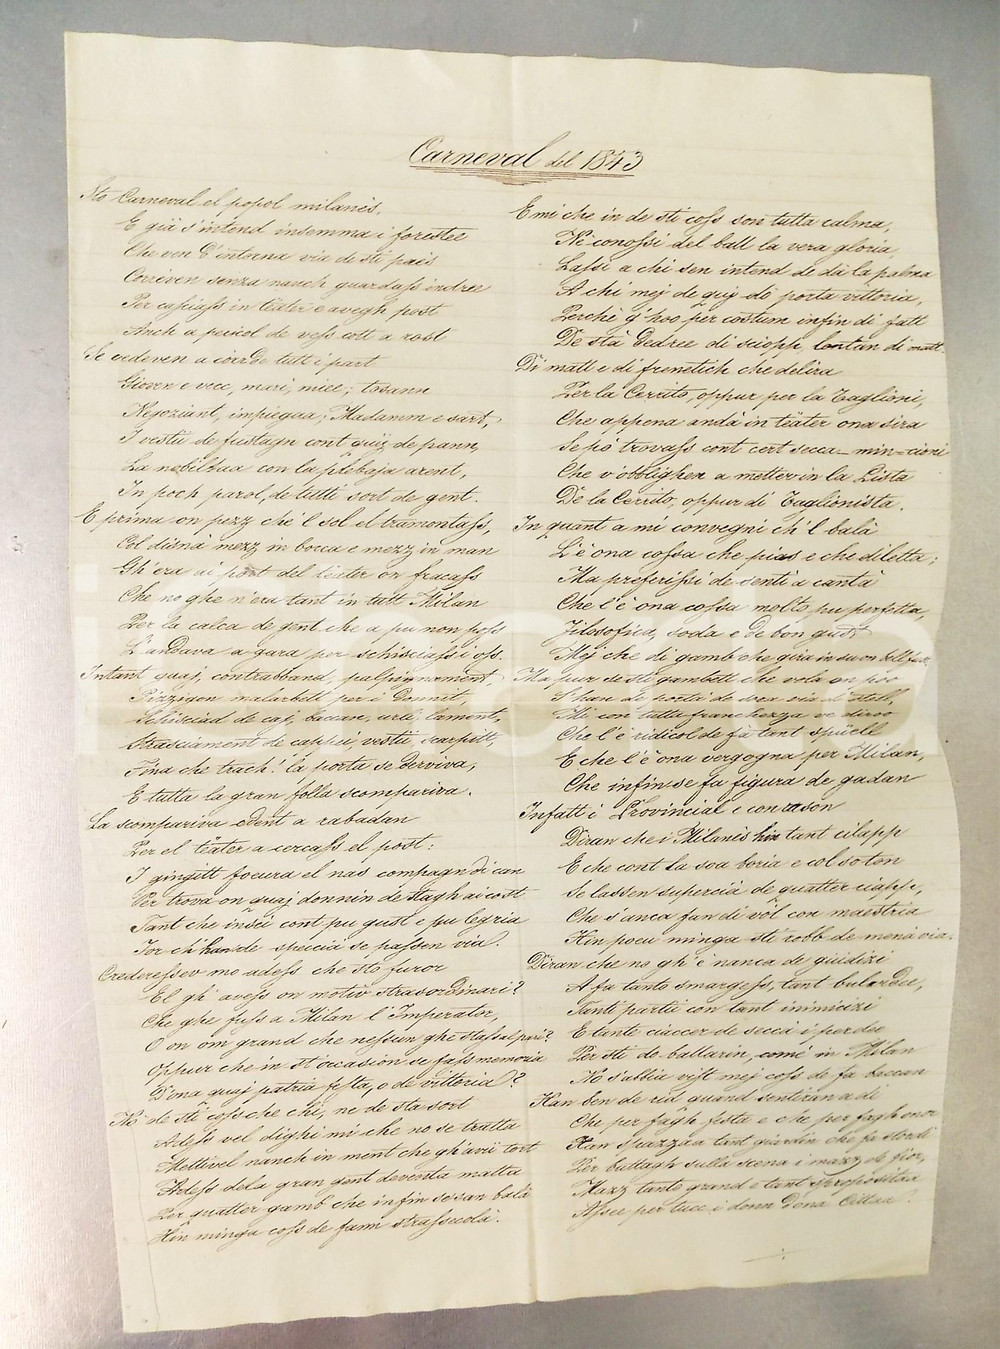 Carneval del 1843
Sto Carneval el popol milanès,
E già s'intend insemma i forestee
Che ven d'intorna via de sti paes
Correven senza nanch guardass indree
Per casciass in teater e avegh post
Anch a pericol de vess cott a rost
Se vedeven a corr de tutt i part
Gioven e vecc, mari, miee, tosann
Negoziant, impiegaa, Madamm e sart,
I vestii de fustagn cont quij de pann,
La nobiltaa con la plebaja arent,
In poch paroll, de tutti sort de gent.
E prima on pezz che 'l sol el tramontass,
Col disnà mezz in bocca e mezz in man
Gh'era ai port del teater on fracass
Che no ghe n'era tant in tutt Milan
Per la calca de gent che a pu non poss
L'andava a gara per schisciass i oss.
Intant quaj contrabband, palpignament,
Pizzigon malarbett per i Donnett,
Schisciad de cap, baccan, urli, lament,
Strasciament de cappei vestii, scarpett,
Fina che trach! la porta se derviva,
E tutta la gran folla scompariva.
La scompariva dent a rabadan
Per el teater a cercass el post:
I gingitt ficcura el nas compagn di can
Per trova on quaj donnin de stagh ai cost
Tant che insci cont pu gust e pu legria
I or ch'han de speccià se passen via.
Crederessev mo adess che sto furor
El gh'avess on motiv strasordinari?
Che ghe fuss a Milan l'Imperator,
O on om grand che nessun ghe stass al pari?
Oppur che in st'occasion se fass memoria
D'ona quaj patria festa, o de vittoria?
Nò de sti coss che chì, ne de sta sort
Adess vel dighi mì che no se tratta
Mettivel nanch in ment che gh'avii tort
Adess de la gran gent deventa matta
Per quatter gamb che infin se san balà
Hin minga coss de fann strasecolà.
E mi che in de sti coss son tutta calma,
Nè conossi del ball la vera gloria
Lassi a chi sen intend de dà la palma
A chi mej de quij dò porta vittoria,
Perchè g'hoo per costum infin di fatt
De sta dedree di sciopp, lontan di matt.
Di matt e di frenetich che delira
Per la Cerrito, oppur per la Taglioni,
Che appena andà in teater ona sira
Se pò trovass cont cert secca-min=cioni
Che v'obblighen a mettev in la Lista
De la Cerrito, oppur di Taglionista.
In quant a mi convegni ch'l balà
L'è ona cossa che pias e che diletta;
Ma preferissi de sentì a cantà
Che l'è ona cossa molto pu perfetta,
Filosofica, soda e de bon gust
Mej che di gamb che gira in su on bell fust.
Ma pur se sti gambett che vola on poo
S'han de portà de sora via di stell,
Mi con tutta franchezza ve diroo
Che l'è ridicol de fa tant spuell
E che l'è ona vergogna per Milan,
Che infin se fa figura de gadan
Infatti i Provincial e con rason
Diran che i Milanès hin tant cilapp
E che cont la soa boria e col so ton
Se lassen supercià de quatter ciapp,
Che s'anca fan di vòl con maestria
Hin poeu minga sti robb de menà via.
Diran che no gh'è nanca de giudizi
A fa tanto smargess, tant bulardee,
Tanti partii con tant inimicizi
E tante ciaccer de secca i perdee
Per sti do ballarin, comè in Milan
No s'abbia vist mej coss de fa baccan
Han ben de rid quand sentiran a dì
Che per fagh festa e che per fagh onor
Han spazzaa tant giardin che fa stordì
Per buttagh sulla scena i mazz de fior,
Mazz tanto grand e tant spropositaa
Assee per tucc i donn d'ona Cittaa.